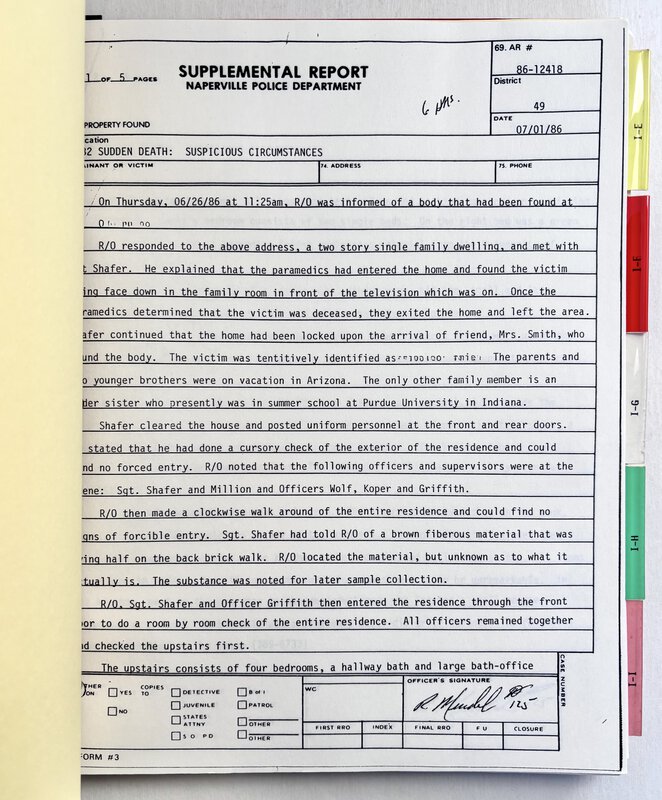 69. AR #
86-12418
1 OF 5 PAGES
SUPPLEMENTAL REPORT
NAPERVILLE POLICE DEPARTMENT
6 pgs.
District
49
DATE
07/01/86
PROPERTY FOUND
cation
32 SUDDEN DEATH: SUSPICIOUS CIRCUMSTANCES
INANT OR VICTIM
74. ADDRESS
75. PHONE
On Thursday, 06/26/86 at 11:25am, R/O was informed of a body that had been found at
R/O responded to the above address, a two story single family dwelling, and met with
t Shafer. He explained that the paramedics had entered the home and found the victim
ing face down in the family room in front of the television which was on. Once the
ramedics determined that the victim was deceased, they exited the home and left the area.
afer continued that the home had been locked upon the arrival of friend, Mrs. Smith, who
und the body. The victim was tentitively identified as The parents and
o younger brothers were on vacation in Arizona. The only other family member is an
der sister who presently was in summer school at Purdue University in Indiana.
Shafer cleared the house and posted uniform personnel at the front and rear doors.
stated that he had done a cursory check of the exterior of the residence and could
nd no forced entry. R/O noted that the following officers and supervisors were at the
ene: Sgt. Shafer and Million and Officers Wolf, Koper and Griffith.
R/O then made a clockwise walk around of the entire residence and could find no
gns of forcible entry. Sgt. Shafer had told R/O of a brown fiberous material that was
ing half on the back brick walk. R/O located the material, but unknown as to what it
tually is. The substance was noted for later sample collection.
R/O, Sgt. Shafer and Officer Griffith then entered the residence through the front
or to do a room by room check of the entire residence. All officers remained together
d checked the upstairs first.
The upstairs consists of four bedrooms, a hallway bath and large bath-office
THER
ON
YES
NO
COPIES
TO
DETECTIVE
JUVENILE
STATES
ATTNY
S O P D
B of I
PATROL
OTHER
OTHER
WC
OFFICER'S SIGNATURE
125
FIRST RRO
INDEX
FINAL RRO
F U
CLOSURE
CASE NUMBER
FORM #3
I-E
I-F
I-G
I-H
I-I